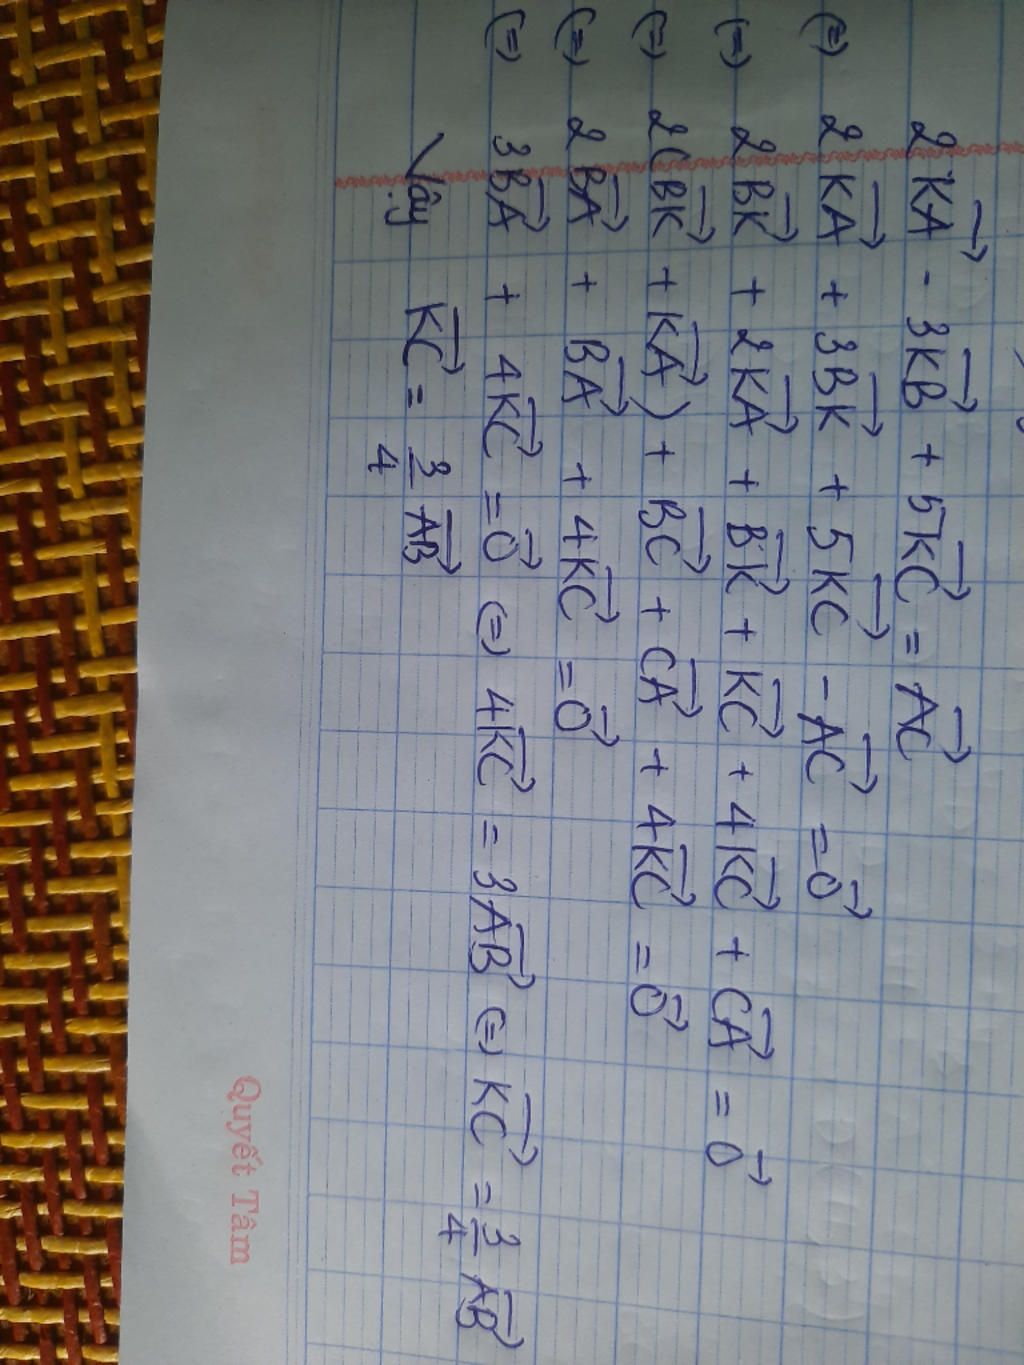 2KA→ - 3KB→ + 5KC→ = AC→
(=) 2KA→ + 3BK→ + 5KC→ - AC→ = 0→
(=) 2BK→ + 2KA→ + BK→ + KC→ + 4KC→ + CA→ = 0→
(=) 2(BK→ + KA→) + BC→ + CA→ + 4KC→ = 0→
(=) 2BA→ + BA→ + 4KC→ = 0→
(=) 3BA→ + 4KC→ = 0→ (=) 4KC→ = 3AB→ (=) KC→ = 3/4 AB→
Vậy KC→ = 3/4 AB→
Quyết Tâm